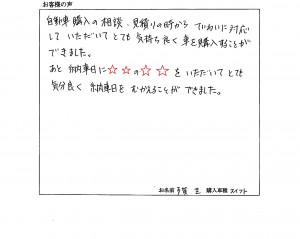 お客様の声
自動車購入の相談、見積りの時から ていねいに対応
して いただいて とても 気持ち良く 車を購入することが
できました。
あと 納車日に☆☆の☆☆を いただいて とても
気分良く 納車日を むかえることが できました。
お名前 購入車種 スイフト